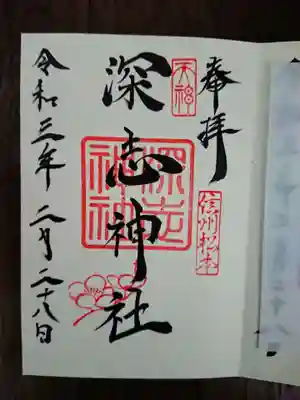 奉拝
信州松本
天神
深志神社
深志神社
令和三年 二月二十八日